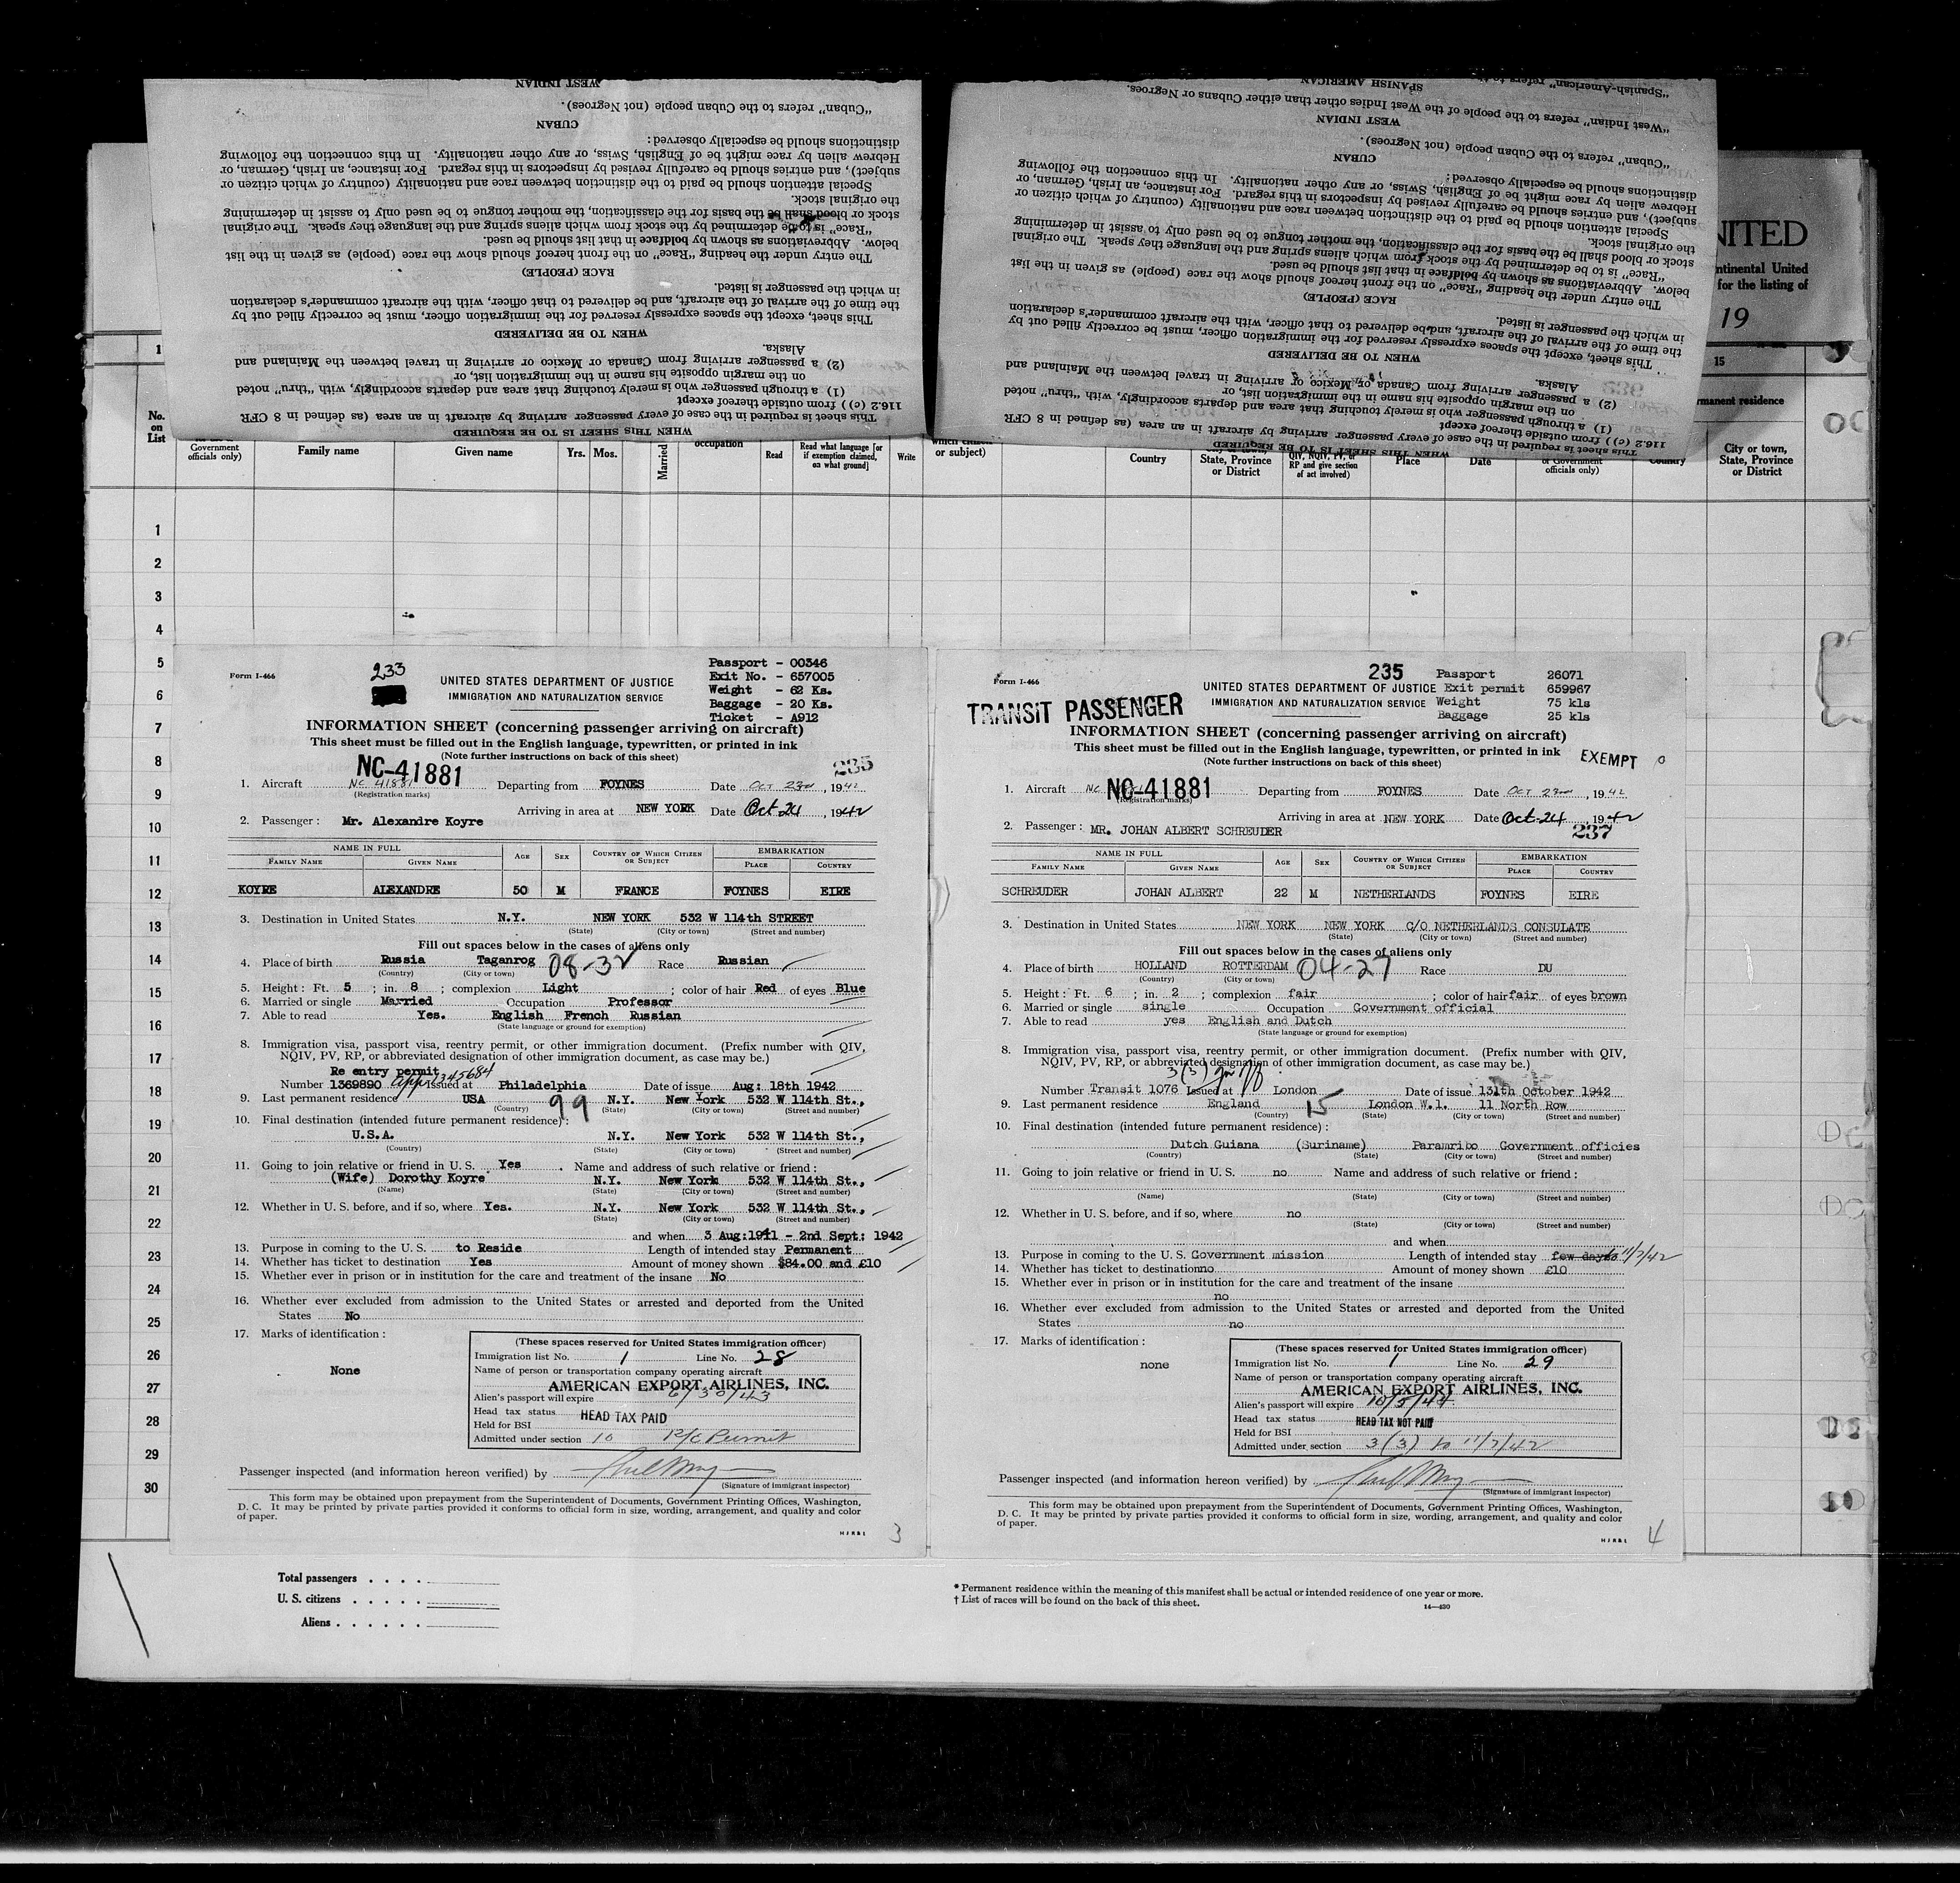 WEST INDIAN
"Cuban" refers to the Cuban people (not Negroes).
CUBAN
distinctions should be especially observed:
Hebrew alien by race might be of English, Swiss, or any other nationality. In this connection the following
subject), and entries should be carefully revised by inspectors in this regard. For instance, an Irish, German, or
Special attention should be paid to the distinction between race and nationality (country of which citizen or
the original stock.
stock or blood shall be the basis for the classification, the mother tongue to be used only to assist in determining
"Race" is to be determined by the stock from which aliens spring and the language they speak. The original
below. Abbreviations as shown by boldface in that list should be used.
The entry under the heading "Race" on the front hereof should show the race (people) as given in the list
RACE (PEOPLE)
in which the passenger is listed.
the time of the arrival of the aircraft, and be delivered to that officer, with the aircraft commander's declaration
This sheet, except the spaces expressly reserved for the immigration officer, must be correctly filled out by
WHEN TO BE DELIVERED
Alaska.
(2) a passenger arriving from Canada or Mexico or arriving in travel between the Mainland and
on the margin opposite his name in the immigration list, or
(1) a through passenger who is merely touching that area and departs accordingly, with "thru" noted
116.2 (c) ) from outside thereof except
This sheet is required in the case of every passenger arriving by aircraft in an area (as defined in 8 CFR
WHEN THIS SHEET IS TO BE REQUIRED
"Spanish-American" refers to
SPANISH AMERICAN
"West Indian" refers to the people of the West Indies other than either Cubans or Negroes.
WEST INDIAN
"Cuban" refers to the Cuban people (not Negroes).
CUBAN
distinctions should be especially observed:
Hebrew alien by race might be of English, Swiss, or any other nationality. In this connection the following
subject), and entries should be carefully revised by inspectors in this regard. For instance, an Irish, German, or
Special attention should be paid to the distinction between race and nationality (country of which citizen or
the original stock.
stock or blood shall be the basis for the classification, the mother tongue to be used only to assist in determining
"Race" is to be determined by the stock from which aliens spring and the language they speak. The original
below. Abbreviations as shown by boldface in that list should be used.
The entry under the heading "Race" on the front hereof should show the race (people) as given in the list
RACE (PEOPLE)
in which the passenger is listed.
the time of the arrival of the aircraft, and be delivered to that officer, with the aircraft commander's declaration
This sheet, except the spaces expressly reserved for the immigration officer, must be correctly filled out by
WHEN TO BE DELIVERED
Alaska.
(2) a passenger arriving from Canada or Mexico or arriving in travel between the Mainland and
on the margin opposite his name in the immigration list, or
(1) a through passenger who is merely touching that area and departs accordingly, with "thru" noted
116.2 (c) ) from outside thereof except
This sheet is required in the case of every passenger arriving by aircraft in an area (as defined in 8 CFR
WHEN THIS SHEET IS TO BE REQUIRED
NITED
ntinental United
for the listing of
19
1
15
rmanent residence
No. on List
Government officials only)
Family name
Given name
Yrs. Mos.
Married
occupation
Read
Read what language [or if exemption claimed, on what ground]
Write
or subject)
Country
State, Province or District
QIV, NQIV, PV, or RP and give section of act involved)
Place
Date
or Government officials only)
Country
City or town, State, Province or District
1
2
3
4
5
6
7
8
9
10
11
12
13
14
15
16
17
18
19
20
21
22
23
24
25
26
27
28
29
30
Form I-466
233
UNITED STATES DEPARTMENT OF JUSTICE
IMMIGRATION AND NATURALIZATION SERVICE
Passport - 00346
Exit No. - 657005
Weight - 62 Ks.
Baggage - 20 Ks.
Ticket - A912
INFORMATION SHEET (concerning passenger arriving on aircraft)
This sheet must be filled out in the English language, typewritten, or printed in ink
(Note further instructions on back of this sheet)
NC-41881
235
1. Aircraft NC 41881 Departing from FOYNES Date Oct 23rd, 1942
(Registration marks)
Arriving in area at NEW YORK Date Oct 24, 1942
2. Passenger: Mr. Alexandre Koyre
NAME IN FULL
FAMILY NAME GIVEN NAME AGE SEX COUNTRY OF WHICH CITIZEN OR SUBJECT EMBARKATION PLACE COUNTRY
KOYRE ALEXANDRE 50 M FRANCE FOYNES EIRE
3. Destination in United States N.Y. NEW YORK 532 W 114th STREET
(State) (City or town) (Street and number)
Fill out spaces below in the cases of aliens only
4. Place of birth Russia Taganrog 08-32 Race Russian
(Country) (City or town)
5. Height: Ft. 5; in. 8; complexion Light; color of hair Red of eyes Blue
6. Married or single Married Occupation Professor
7. Able to read Yes. English French Russian
(State language or ground for exemption)
8. Immigration visa, passport visa, reentry permit, or other immigration document. (Prefix number with QIV,
NQIV, PV, RP, or abbreviated designation of other immigration document, as case may be.)
Re entry permit
Number 1369890 app 1345684 issued at Philadelphia Date of issue Aug: 18th 1942
9. Last permanent residence USA 99 N.Y. New York 532 W 114th St.,
(Country) (State) (City or town) (Street and number)
10. Final destination (intended future permanent residence):
U.S.A. N.Y. New York 532 W 114th St.,
(Country) (State) (City or town) (Street and number)
11. Going to join relative or friend in U. S. Yes. Name and address of such relative or friend:
(Wife) Dorothy Koyre N.Y. New York 532 W 114th St.,
(Name) (State) (City or town) (Street and number)
12. Whether in U. S. before, and if so, where Yes. N.Y. New York 532 W 114th St.,
(State) (City or town) (Street and number)
and when 3 Aug:1941 - 2nd Sept: 1942
13. Purpose in coming to the U. S. to Reside Length of intended stay Permanent
14. Whether has ticket to destination Yes Amount of money shown $84.00 and £10
15. Whether ever in prison or in institution for the care and treatment of the insane No
16. Whether ever excluded from admission to the United States or arrested and deported from the United
States No
17. Marks of identification:
None
(These spaces reserved for United States immigration officer)
Immigration list No. 1 Line No. 28
Name of person or transportation company operating aircraft
AMERICAN EXPORT AIRLINES, INC.
Alien's passport will expire 6/30/43
Head tax status HEAD TAX PAID
Held for BSI
Admitted under section 10 R/e Permit
Passenger inspected (and information hereon verified) by
(Signature of immigrant inspector)
This form may be obtained upon prepayment from the Superintendent of Documents, Government Printing Offices, Washington,
D. C. It may be printed by private parties provided it conforms to official form in size, wording, arrangement, and quality and color
of paper.
3
Form I-466
TRANSIT PASSENGER
235
UNITED STATES DEPARTMENT OF JUSTICE
IMMIGRATION AND NATURALIZATION SERVICE
Passport 26071
Exit permit 659967
Weight 75 kls
Baggage 25 kls
INFORMATION SHEET (concerning passenger arriving on aircraft)
This sheet must be filled out in the English language, typewritten, or printed in ink
(Note further instructions on back of this sheet)
EXEMPT
NC-41881
1. Aircraft NC Departing from FOYNES Date Oct 23rd, 1942
(Registration marks)
Arriving in area at NEW YORK Date Oct 24, 1942
237
2. Passenger: MR. JOHAN ALBERT SCHREUDER
NAME IN FULL
FAMILY NAME GIVEN NAME AGE SEX COUNTRY OF WHICH CITIZEN OR SUBJECT EMBARKATION PLACE COUNTRY
SCHREUDER JOHAN ALBERT 22 M NETHERLANDS FOYNES EIRE
3. Destination in United States NEW YORK NEW YORK C/O NETHERLANDS CONSULATE
(State) (City or town) (Street and number)
Fill out spaces below in the cases of aliens only
4. Place of birth HOLLAND ROTTERDAM 04-27 Race DU
(Country) (City or town)
5. Height: Ft. 6; in. 2; complexion fair; color of hair fair of eyes brown
6. Married or single single Occupation Government official
7. Able to read yes English and Dutch
(State language or ground for exemption)
8. Immigration visa, passport visa, reentry permit, or other immigration document. (Prefix number with QIV,
NQIV, PV, RP, or abbreviated designation of other immigration document, as case may be.)
3(3)
Number Transit 1076 Issued at London Date of issue 13th October 1942
9. Last permanent residence England 15 London W.1. 11 North Row
(Country) (State) (City or town) (Street and number)
10. Final destination (intended future permanent residence):
Dutch Guiana (Suriname) Paramribo Government officies
(Country) (State) (City or town) (Street and number)
11. Going to join relative or friend in U. S. no Name and address of such relative or friend:
(Name) (State) (City or town) (Street and number)
12. Whether in U. S. before, and if so, where no
(State) (City or town) (Street and number)
and when
13. Purpose in coming to the U. S. Government mission Length of intended stay few days to 11/7/42
14. Whether has ticket to destination no Amount of money shown £10
15. Whether ever in prison or in institution for the care and treatment of the insane
no
16. Whether ever excluded from admission to the United States or arrested and deported from the United
States no
17. Marks of identification:
none
(These spaces reserved for United States immigration officer)
Immigration list No. 1 Line No. 29
Name of person or transportation company operating aircraft
AMERICAN EXPORT AIRLINES, INC.
Alien's passport will expire 10/5/44
Head tax status HEAD TAX NOT PAID
Held for BSI
Admitted under section 3(3) to 11/7/42
Passenger inspected (and information hereon verified) by
(Signature of immigrant inspector)
This form may be obtained upon prepayment from the Superintendent of Documents, Government Printing Offices, Washington,
D. C. It may be printed by private parties provided it conforms to official form in size, wording, arrangement, and quality and color
of paper.
4
Total passengers
U. S. citizens
Aliens
* Permanent residence within the meaning of this manifest shall be actual or intended residence of one year or more.
† List of races will be found on the back of this sheet.
14—430